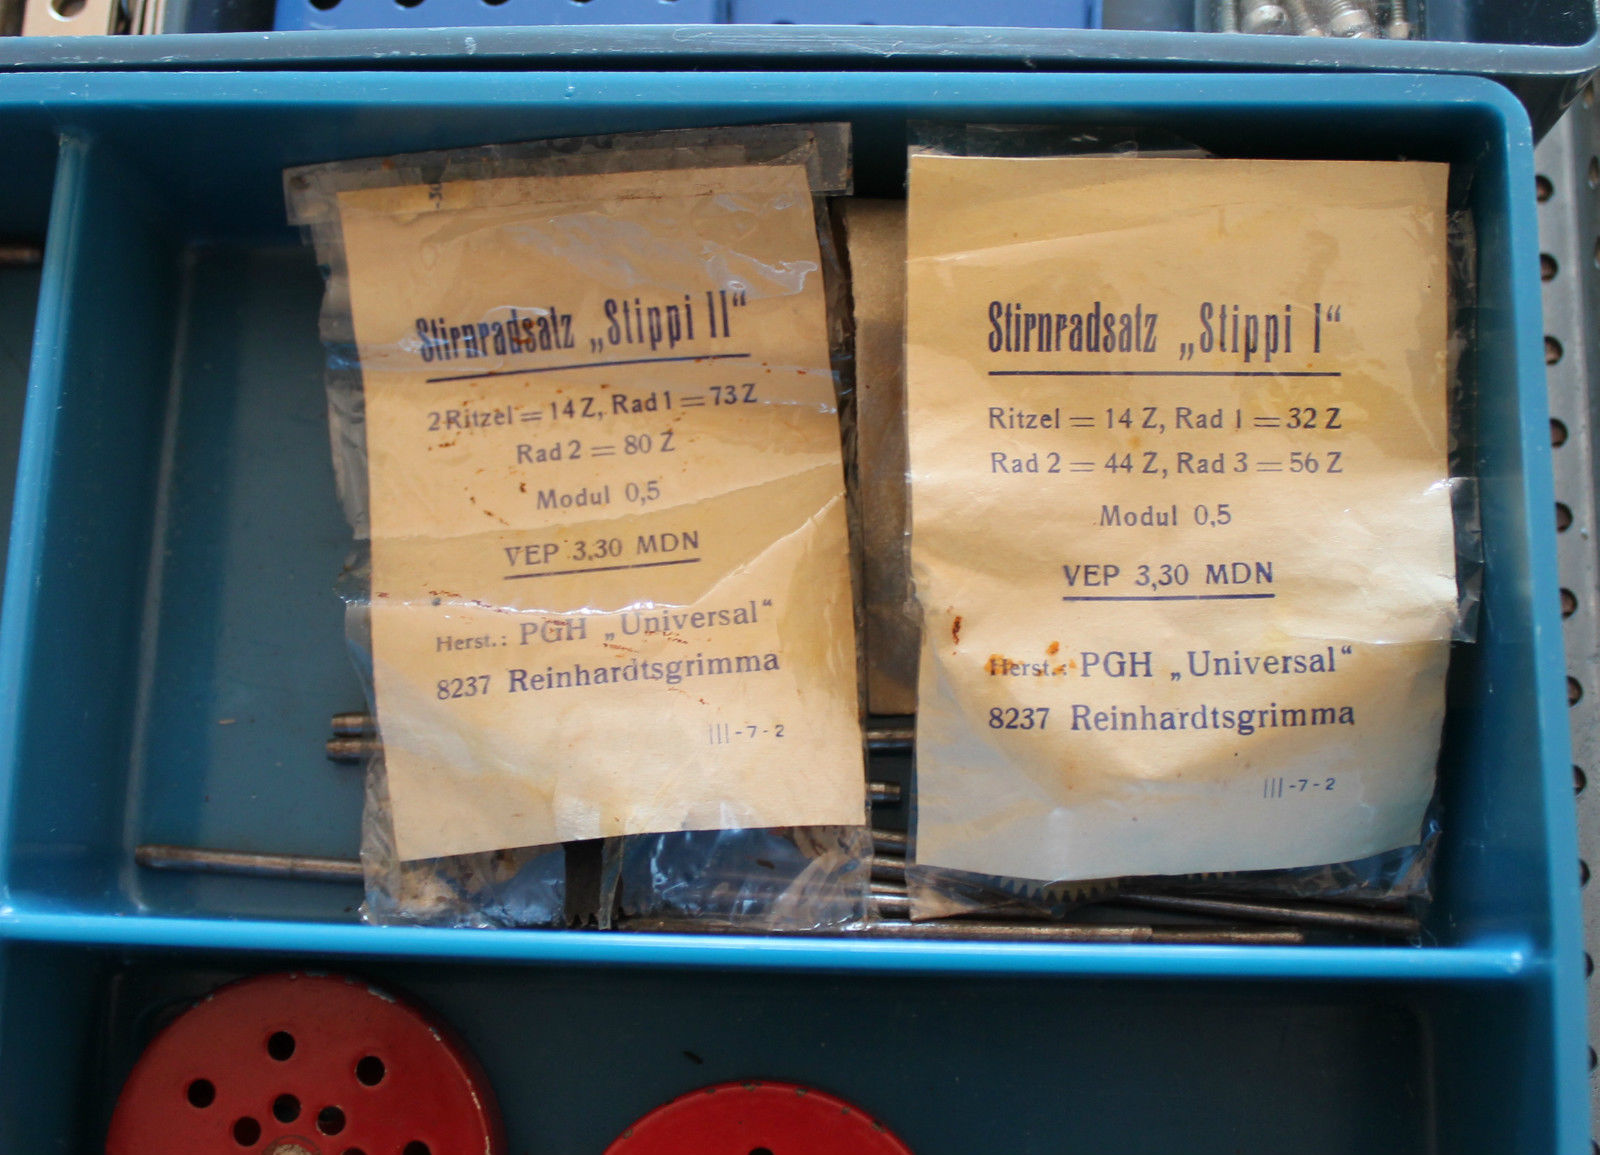 Stirnradsatz „Stippi II“
2 Ritzel = 14 Z, Rad 1 = 73 Z
Rad 2 = 80 Z
Modul 0,5
VEP 3,30 MDN
Herst.: PGH „Universal“
8237 Reinhardtsgrimma
III-7-2
Stirnradsatz „Stippi I“
Ritzel = 14 Z, Rad 1 = 32 Z
Rad 2 = 44 Z, Rad 3 = 56 Z
Modul 0,5
VEP 3,30 MDN
Herst.: PGH „Universal“
8237 Reinhardtsgrimma
III-7-2